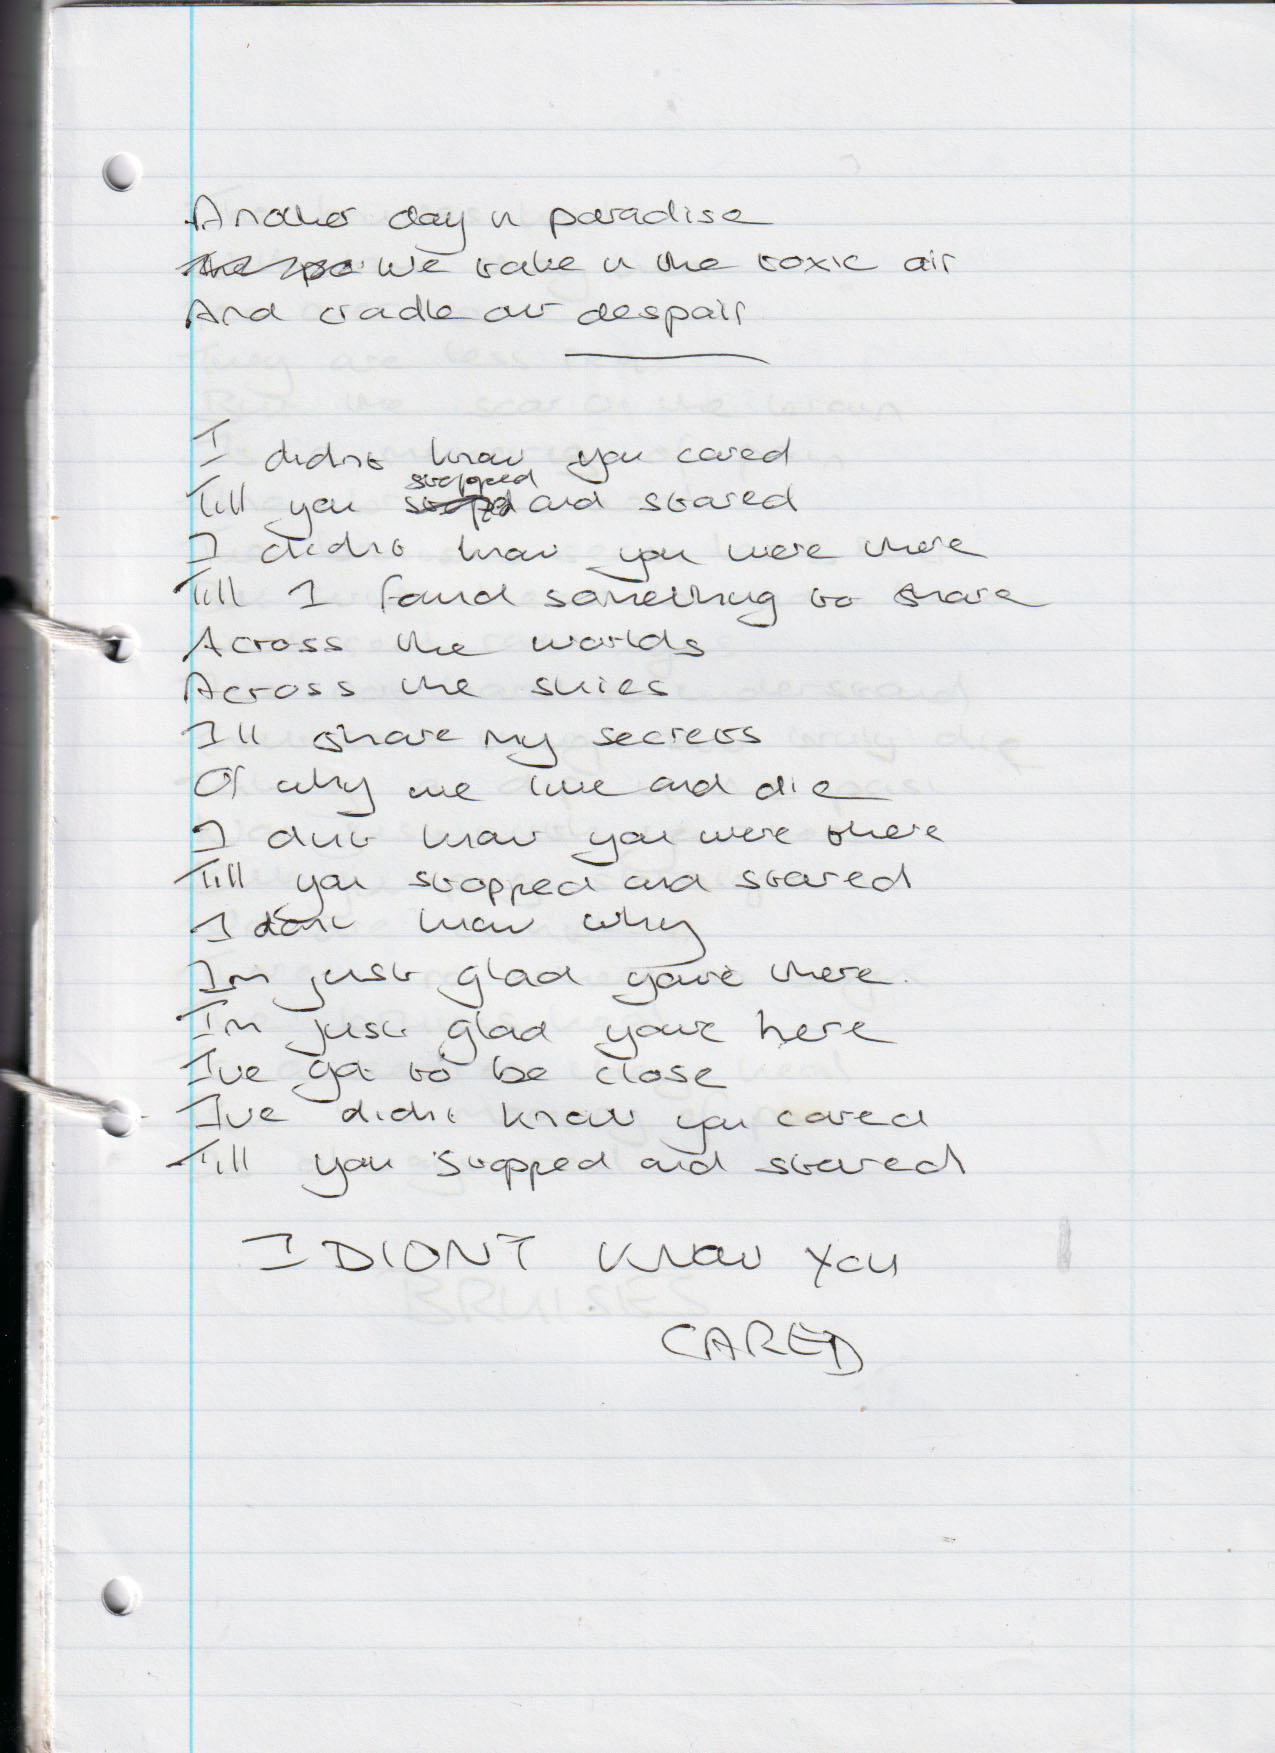 Another day in paradise
We take in the toxic air
And cradle our despair
I didnt know you cared
Till you stopped and stared
I didnt know you were there
Till I found something to share
Across the worlds
Across the skies
Ill share my secrets
Of why we live and die
I didnt know you were there
Till you stopped and stared
I dont know why
Im just glad youre there.
Im just glad youre here
Ive got to be close
Ive didnt know you cared
Till you stopped and stared
I DIDNT KNOW YOU
CARED